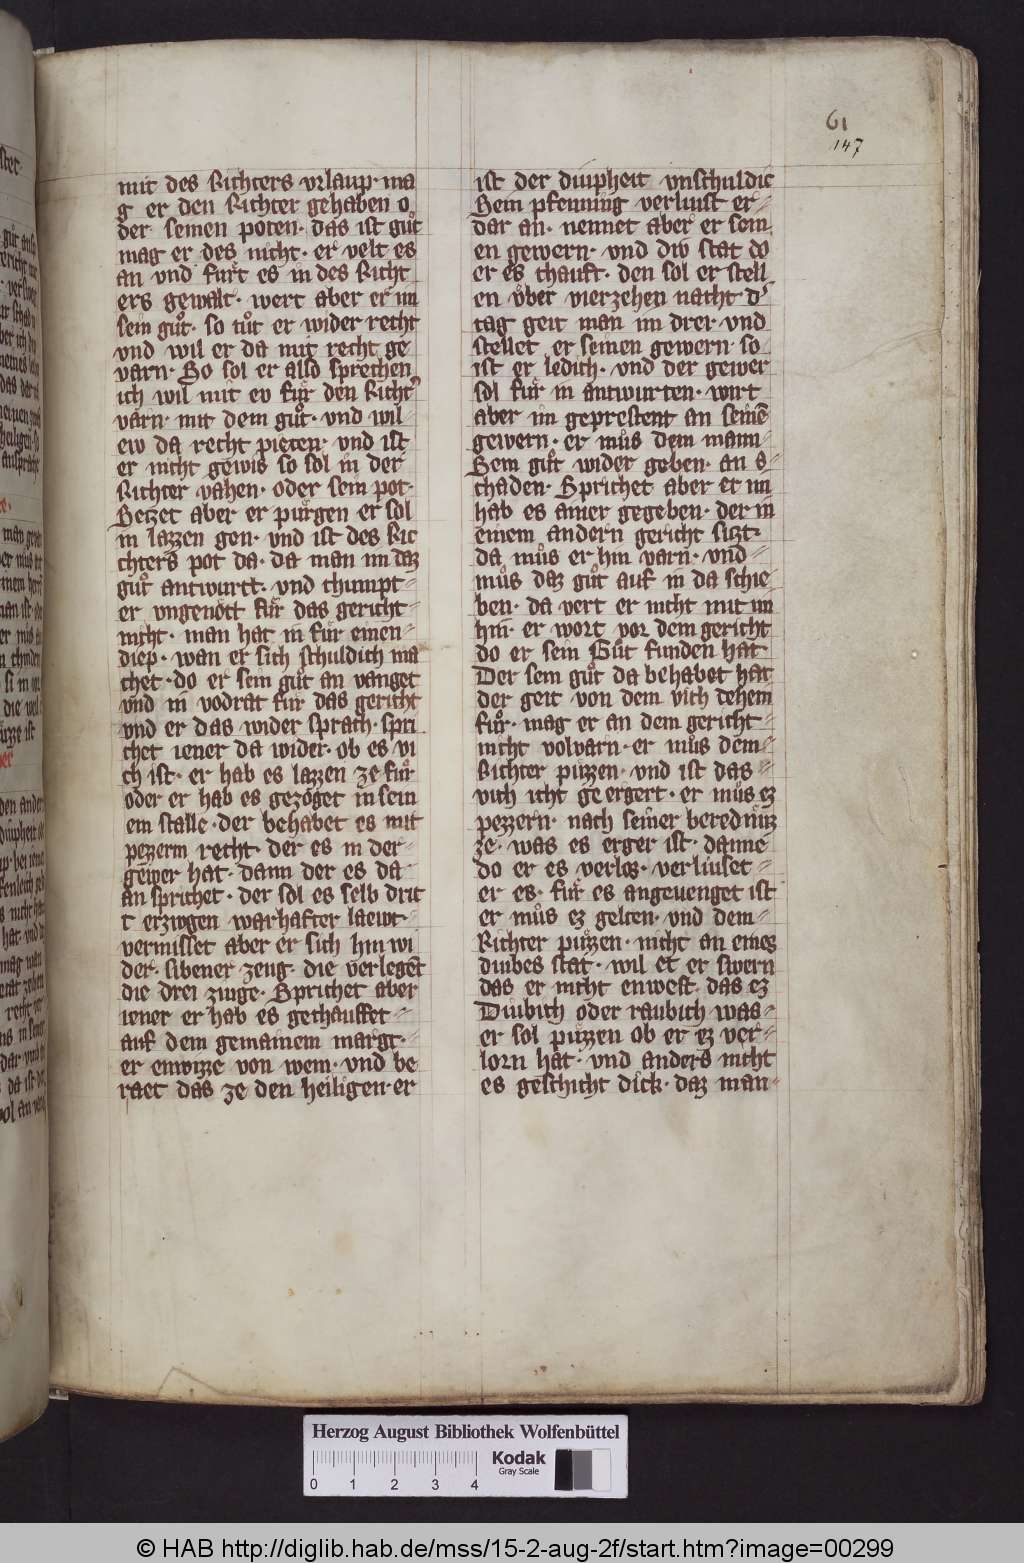 61
147
mit des Richters vrlaup· ma
g er den Richter gehaben o
der seinen poten· das ist guͦt
mag er des nicht· er velt es
an vnd furt es in des Richt
ers gewalt· wert aber er im
sein guͦt· so tuͦt er wider recht
vnd wil er da mit recht ge
varn· So sol er also sprechen
ich wil mit ev fuͤr den Richt
varn· mit dem guͦt· vnd wil
ew da recht pieten· vnd ist
er nicht gewis so sol in der
Richter vahen· oder sein pot·
Setzet aber er puͤrgen er sol
in lazzen gen· vnd ist des Ric
chters pot da· da man im daz
guͦt antwurtt· vnd chumpt
er vngenoͤtt fuͤr das gericht
nicht· man hat in fuͤr einen
diep· wan er sich schuldich ma
chet· do er sein guͦt an vanget
vnd in vodrat fuͤr das gericht
vnd er das wider sprach· spri
chet iener da wider· ob es vi
ch ist· er hab es lazzen ze fuͦr
oder er hab es gezoget in sein
em stalle· der behabet es mit
pezzerm recht· der es in der
gewer hat· dann der es da
an sprichet· der sol es selb drit
t erzivgen warhafter laewt·
vermisset aber er sich hin wi
der· sibener zeug· die verlegēt
die drei zivge· Sprichet aber
iener er hab es gechauffet
auf dem gemainem margt·
er enwizze von wem· vnd be
raet das ze den heiligen· er
ist der diupheit vnschuldic
Sein pfenning verliust er
dar an· nennet aber er sein
en gewern· vnd diw stat do
er es chauft· den sol er stell
en vͤber vierzehen nacht d
tag geit man im drei· vnd
stellet er seinen gewern· so
ist er ledich· vnd der gewer
sol fuͤr in antwurten· wirt
aber im geprestent an seinē
gewern· er muͦs dem mann
Sein guͦt wider geben· an s
chaden· Sprichet aber er im
hab es ainer gegeben· der in
einem andern gericht sitzt·
da muͦs er hin varn· vnd
muͦs daz guͦt auf in da schie
ben· da vert er nicht mit im
hin· er wort vor dem gericht
do er sein Guͦt funden hat·
Der sein guͦt da behabet hat
der geit von dem vich dehein
fuͦr· mag er an dem gericht
nicht volvarn· er muͦs dem
Richter puͤzzen· vnd ist das
vich icht ge ergert· er muͦs ez
pezzern· nach seiner berednuͤz
ze· was es erger ist· danne
do er es verlos· verliuset
er es· fuͤr es angevenget ist
er muͦs ez gelten· vnd dem
Richter puͤzzen· nicht an eines
diubes stat· wil et er swern
das er nicht enwest· das ez
Diubich oder raubich was
er sol puͤzzen ob er ez ver
lorn hat· vnd anders nicht
es geschicht dick· daz man
Herzog August Bibliothek Wolfenbüttel
Kodak
Gray Scale
0 1 2 3 4
© HAB http://diglib.hab.de/mss/15-2-aug-2f/start.htm?image=00299